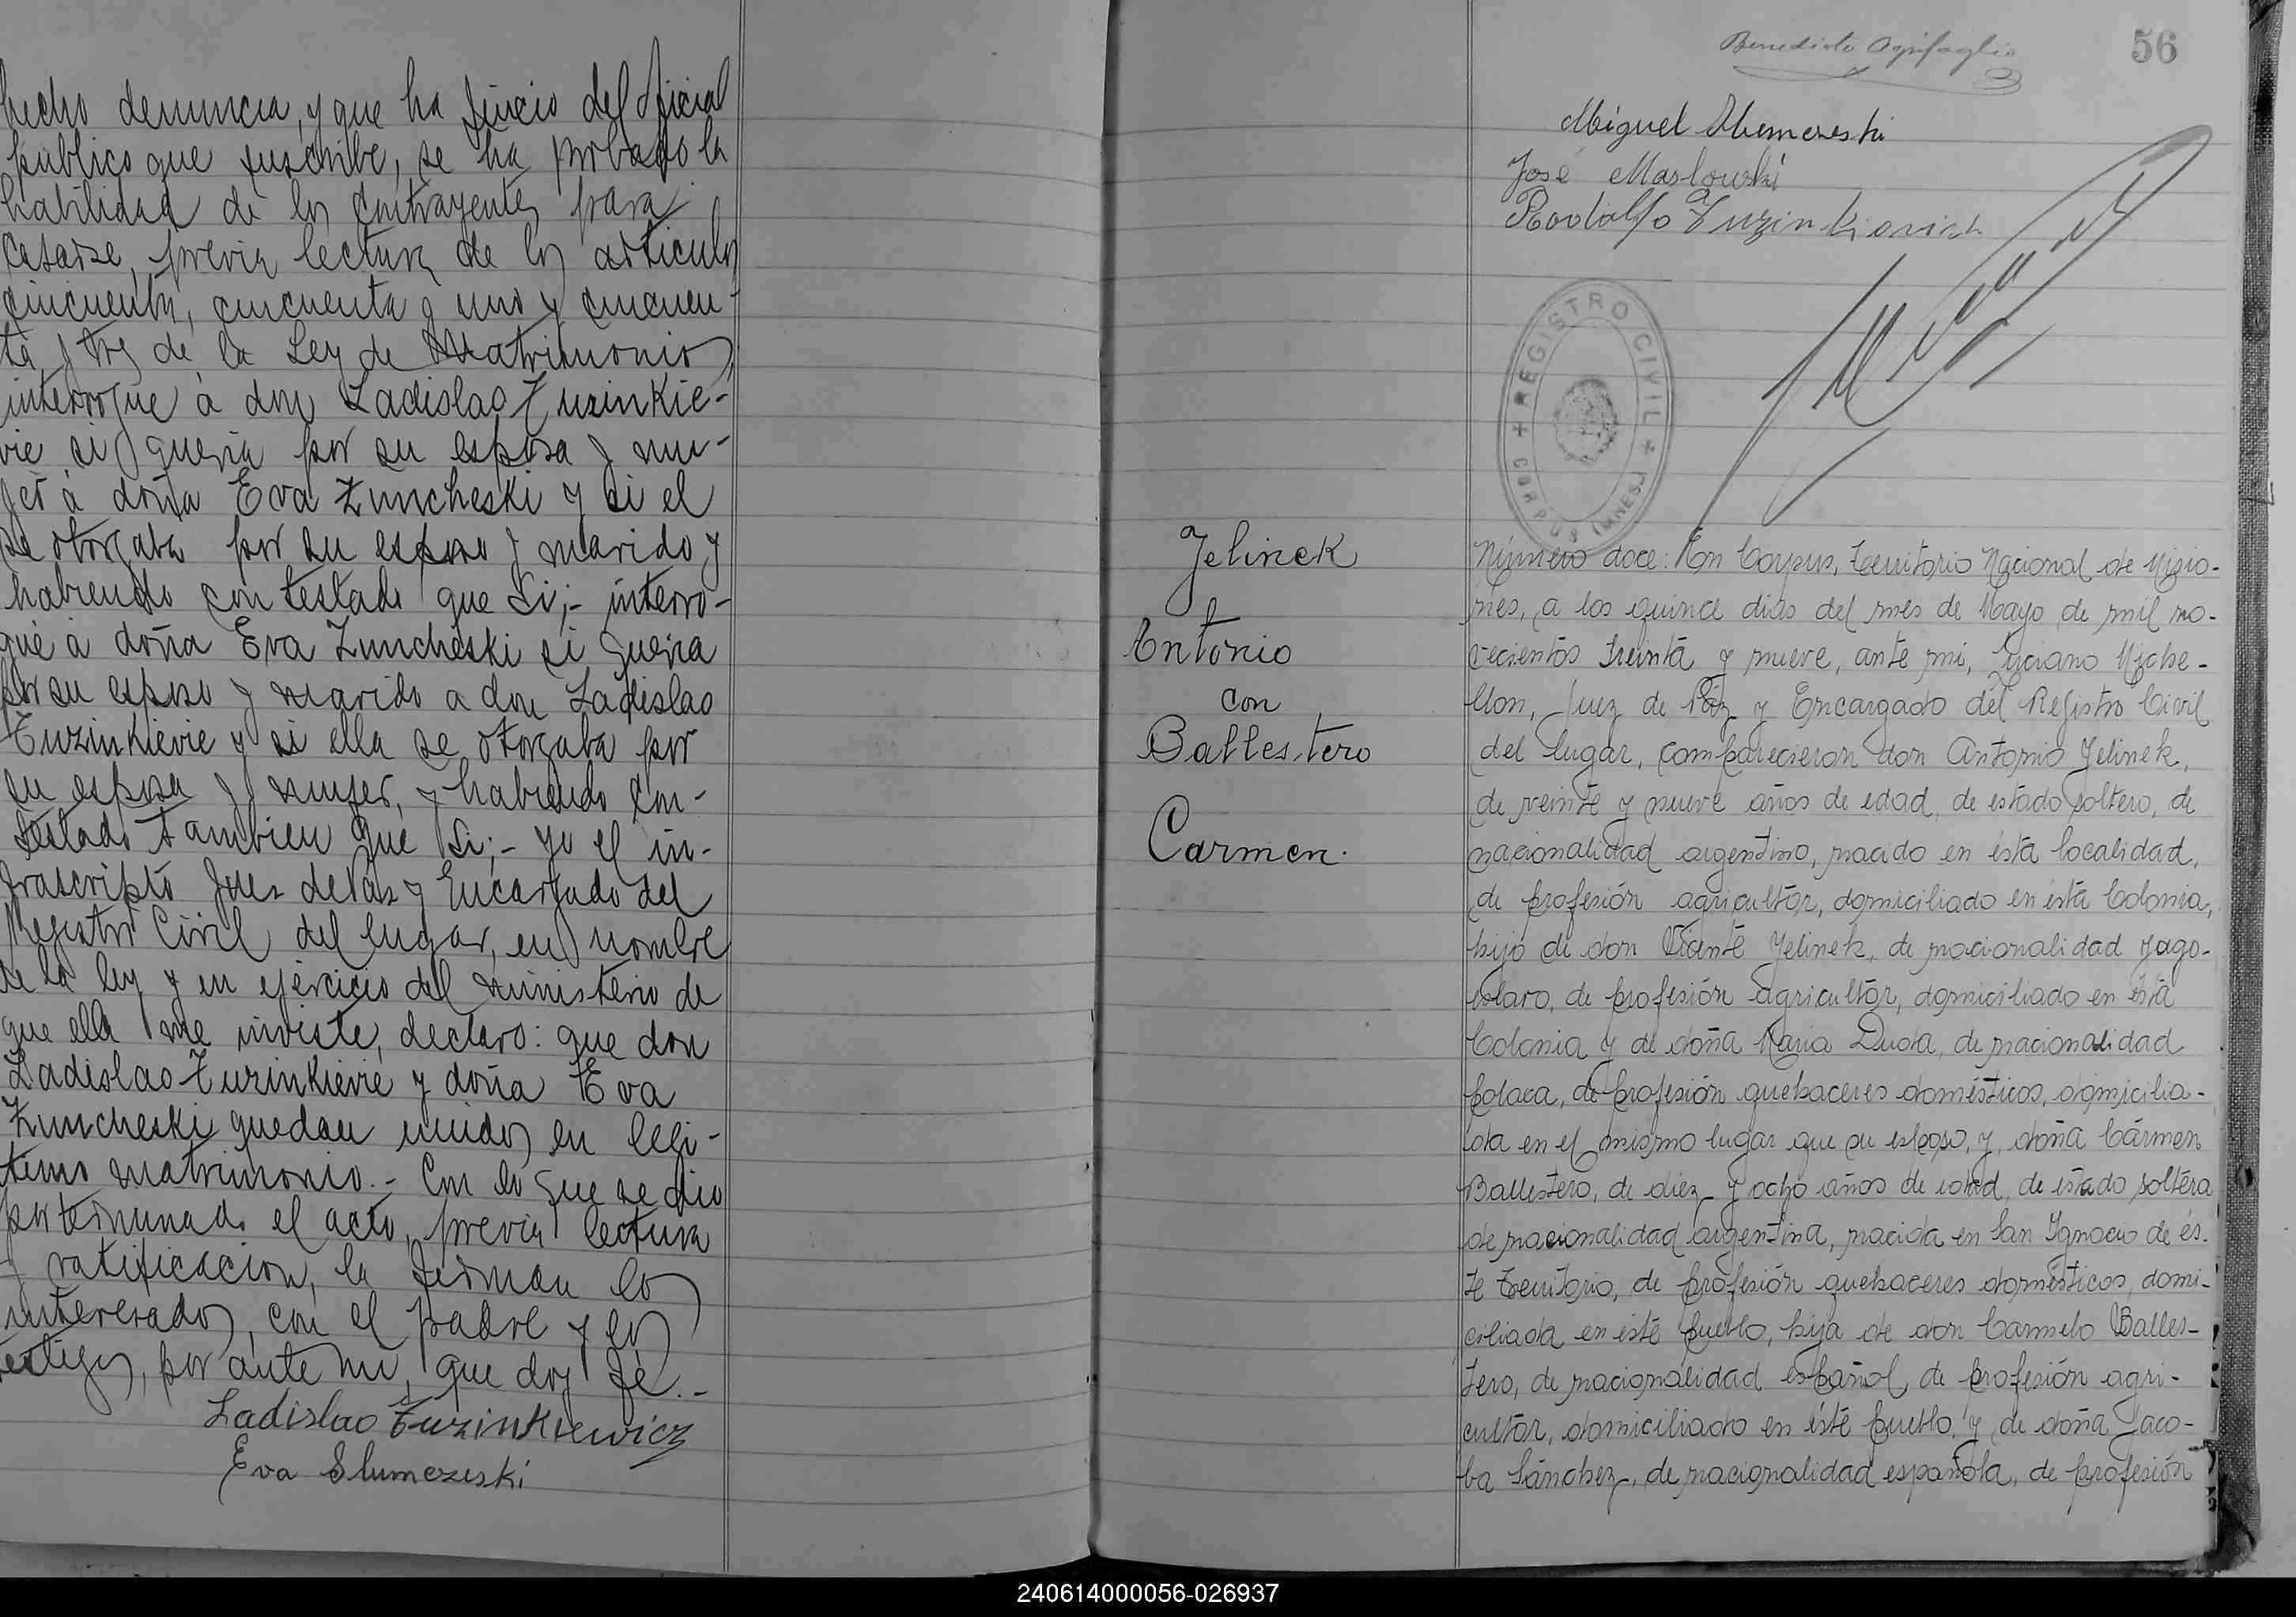 hecho denuncia, y que ha juicio del oficial
público que suscribe, se ha probado la
habilidad de los contrayentes para
casarse, previa lectura de los articulos
cincuenta, cincuenta y uno y cincuen-
ta y tres de la Ley de Matrimonio,
interrogué á don Ladislao Tuzinkie-
vie si queria por su esposa y mu-
jer á doña Eva Zumcheski y si el
se otorgaba por su esposo y marido y
habiendo contestado que Si;- interro-
gué á doña Eva Zumcheski si queria
por su esposo y marido a don Ladislao
Tuzinkievie y si ella se otorgaba por
su esposa y mujer, y habiendo con-
testado tambien que Si;- yo el in-
frascripto Juez de Paz y Encargado del
Registro Civil del lugar, en nombre
de la ley y en ejercicio del ministerio de
que ella me inviste, declaro: que don
Ladislao Tuzinkievie y doña Eva
Zumcheski quedan unidos en legi-
timo matrimonio.- Con lo que se dio
por terminado el acto, previa lectura
y ratificación, la firman los
interesados, con el padre y los
testigos, por ante mi, que doy fé.-
Ladislao Tuzinkiewicz
Eva Slumczeski
56
Benedicto
Miguel
José Maslowski
Rodolfo
REGISTRO CIVIL
CORPUS (MNES.)
Jelinek
Antonio
con
Ballestero
Carmen.
Número doce: En Corpus, Territorio Nacional de Misio-
nes, a los quince dias del mes de Mayo de mil no-
vecientos treinta y nueve, ante mi, Luciano Miche-
llon, Juez de Paz y Encargado del Registro Civil
del lugar, comparecieron don Antonio Jelinek,
de veinte y nueve años de edad, de estado soltero, de
nacionalidad argentino, nacido en ésta localidad,
de profesión agricultor, domiciliado en ésta Colonia,
hijo de don Vicente Jelinek, de nacionalidad yugo-
eslavo, de profesión agricultor, domiciliado en ésta
Colonia y de doña Maria Duda, de nacionalidad
polaca, de profesión quehaceres domésticos, domicilia-
da en el mismo lugar que su esposo, y, doña Cármen
Ballestero, de diez y ocho años de edad, de estado soltera
de nacionalidad argentina, nacida en San Ignacio de és-
te Territorio, de profesión quehaceres domésticos, domi-
ciliada en éste pueblo, hija de don Carmelo Balles-
tero, de nacionalidad español, de profesión agri-
cultor, domiciliado en éste pueblo, y de doña Jaco-
ba Sánchez, de nacionalidad española, de profesión
240614000056-026937